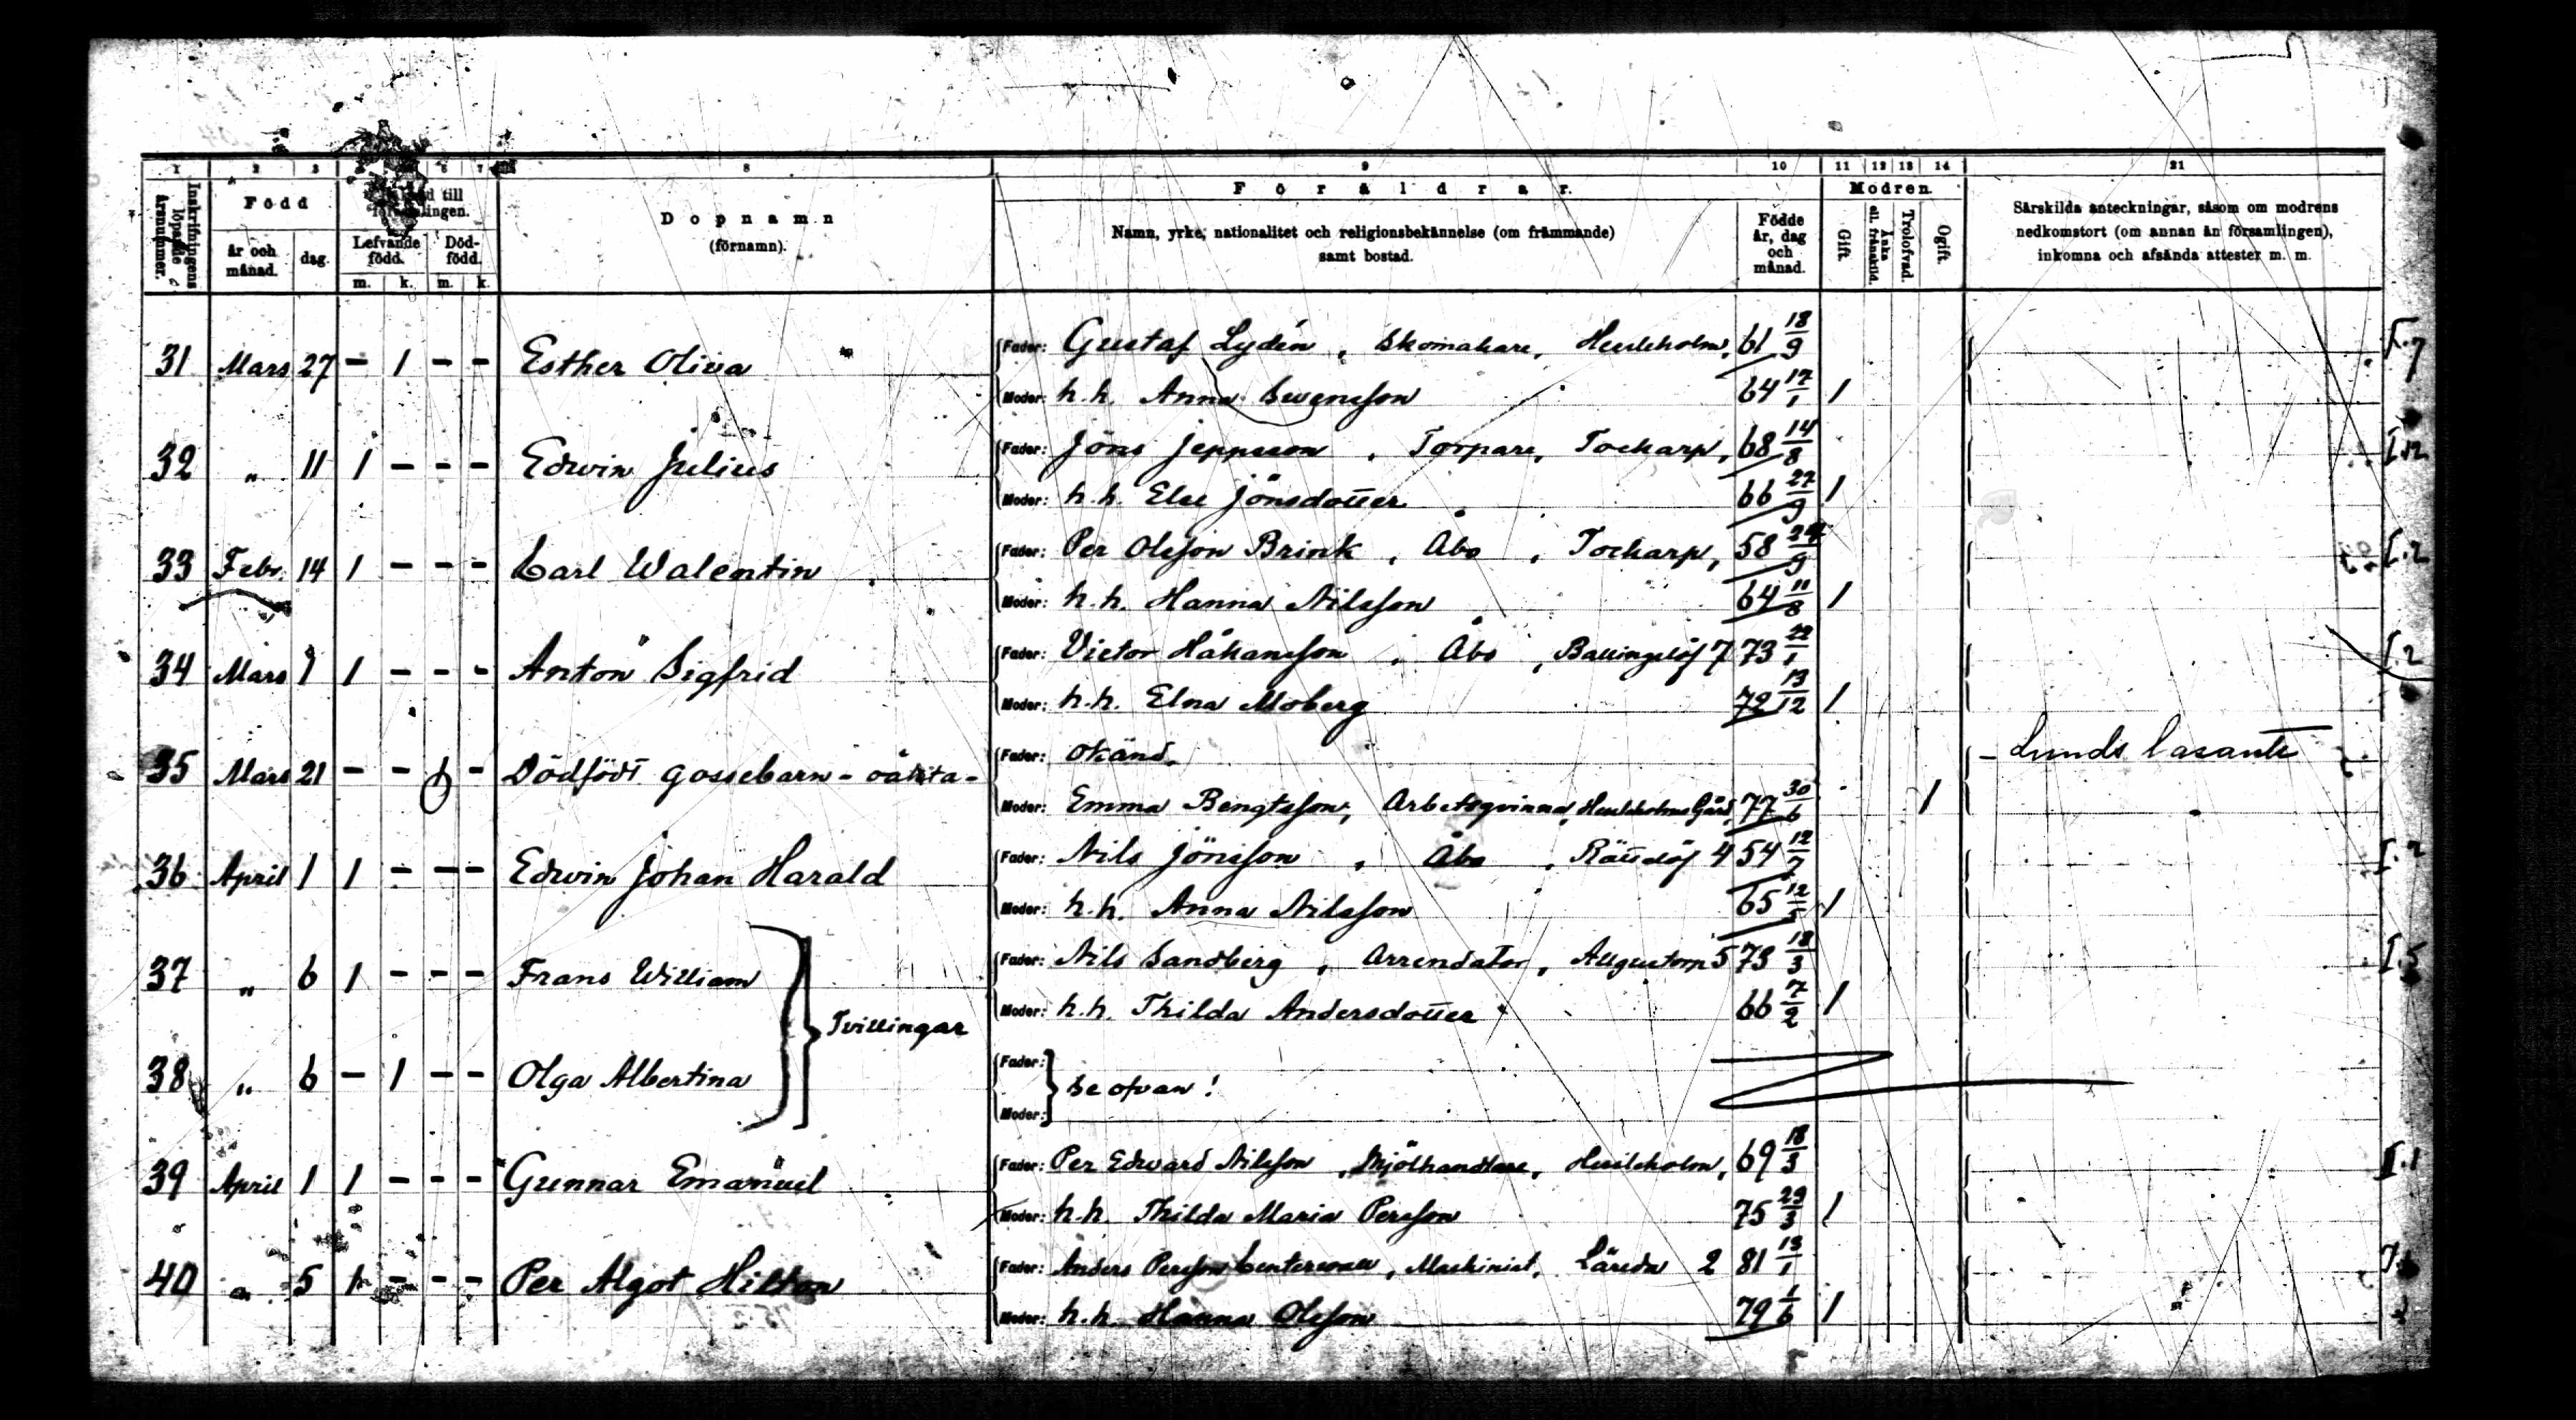 1 2 3 6 7 8 9 10 11 12 13 14 21
Inskrifningens löpande årsnummer.
Född
år och månad.
dag.
till
Lefvande född.
Död-född.
m. k. m. k.
Dopnamn
(förnamn).
Föräldrar.
Namn, yrke, nationalitet och religionsbekännelse (om främmande)
samt bostad.
Födde år, dag och månad.
Modren
Gift.
Änka ell. frånskild.
Trolofvad.
Ogift.
Särskilda anteckningar, såsom om modrens
nedkomstort (om annan än församlingen),
inkomna och afsända attester m. m.
31 Mars 27 - 1 - - Esther Olivia
Fader: Gustaf Lydén, Skomakare, Hessleholm, 61 18/9
Moder: h.h. Anna Swensson 64 17/1 1
I.7
32 " 11 1 - - - Edwin Julius
Fader: Jöns Jeppsson, Torpare, Tockarp, 68 14/8
Moder: h.h. Else Jönsdotter 66 27/9 1
33 Febr. 14 1 - - - Carl Walentin
Fader: Per Olsson Brink, Åbo, Tockarp, 58 24/9
Moder: h.h. Hanna Nilsson 64 11/8 1
I.2
34 Mars 1 1 - - - Anton Sigfrid
Fader: Victor Håkansson, Åbo, Ballingslöf 7 73 22/1
Moder: h.h. Elna Moberg 72 13/12 1
I.2
35 Mars 21 - - - Dödfödt gossebarn - oäkta -
Fader: okänd.
- Lunds lasarett
Moder: Emma Bengtsson, Arbetsqvinna, Hessleholms Gård, 77 30/6 1
36 April 1 1 - - - Edwin Johan Harald
Fader: Nils Jönsson, Åbo, Röttelöf 4 54 12/7
Moder: h.h. Anna Nilsson 65 12/5 1
I.2
37 " 6 1 - - - Frans William
Fader: Nils Sandberg, Arrendator, Augustorp 5 73 18/3
Moder: h.h. Thilda Andersdotter 66 7/2 1
I.5
Tvillingar
38 " 6 - 1 - - Olga Albertina
Fader:
se ofvan!
Moder:
39 April 1 1 - - - Gunnar Emanuel
Fader: Per Edward Nilsson, Mjölhandlare, Hessleholm, 69 18/3
Moder: h.h. Thilda Maria Persson 75 29/3 1
I.1
40 " 5 1 - - - Per Algot Hilton
Fader: Anders Persson, Maskinist, Läreda 2 81 13/1
Moder: h.h. Hanna Olsson 79 1/6 1